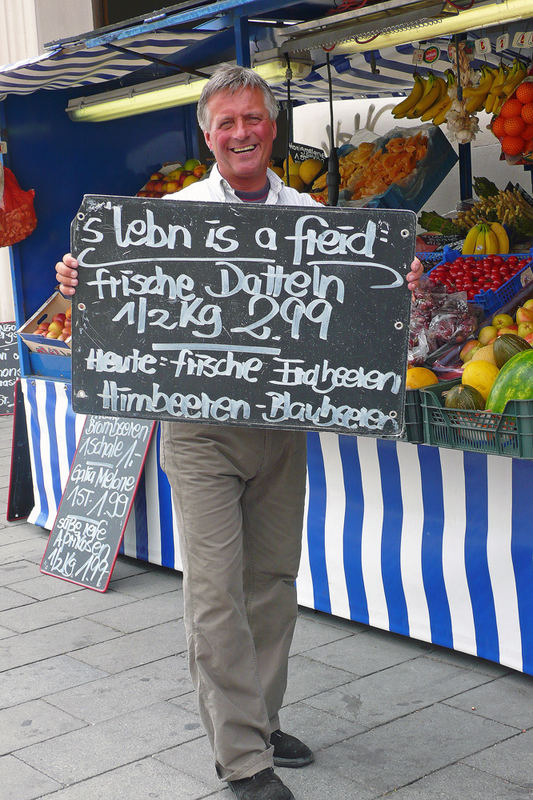 s' lebn is a freid
frische Datteln
1/2 Kg 2.99
Heute = frische Erdbeeren
Himbeeren - Blaubeeren
Brombeeren
1 Schale 1,-
Galia Melone
1 ST. 1.99
süße reife
Aprikosen
1/2 Kg 1.99